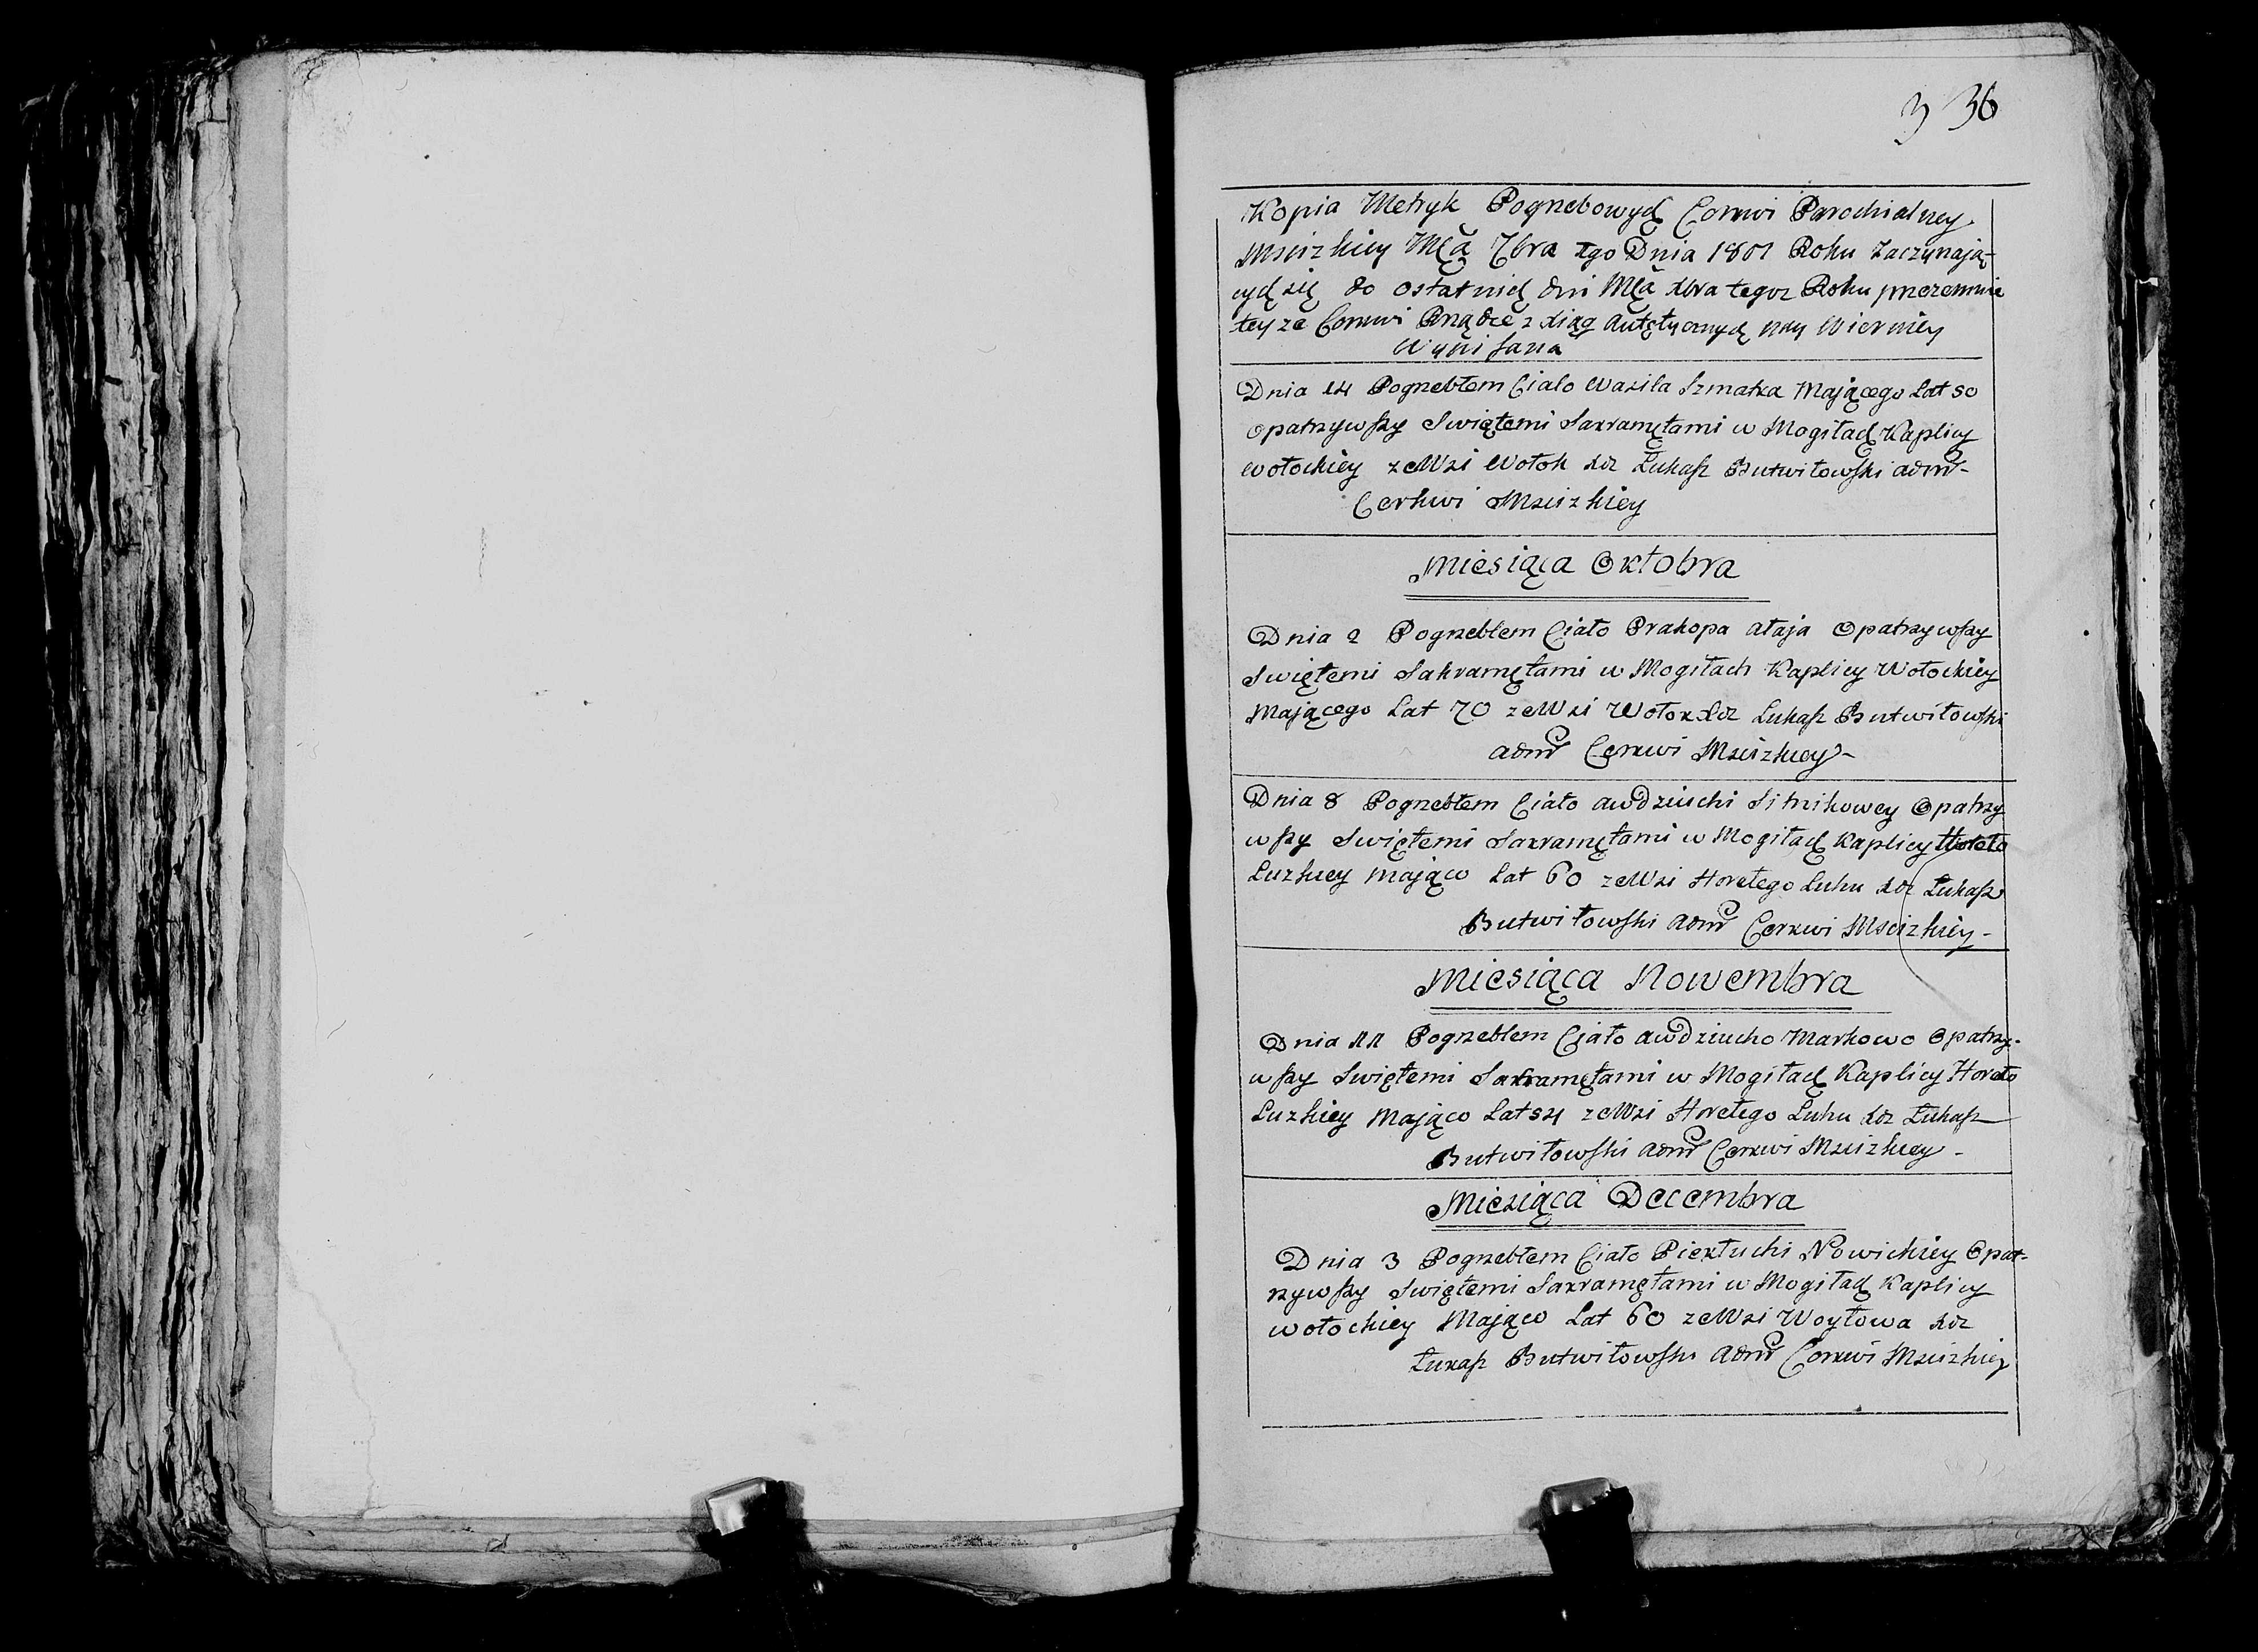 3 36
Kopia Metryk Pogrzebowych Cerkwi Parochialney
Mscizkiey Mca 7bra 1go Dnia 1801 Roku Zaczynają-
cych się do ostatnich dni Mca Xbra tegoz Roku przezemnie
teyze Cerkwi Rządce z Xiąg Autętycznych nay Wierniey
Wypisana
Dnia 14 Pogrzebłem Ciało Wasila Szmatka Mającego Lat 50
Opatrzywszy Swiętemi Sakramętami w Mogiłach Kaplicy
Wołockiey ze Wsi Wołok Xdz Łukasz Butwiłowski adm
Cerkwi Mscizkiey
Miesiąca Oktobra
Dnia 2 Pogrzebłem Ciało Prakopa ataja Opatrzywszy
Swiętemi Sakramętami w Mogiłach Kaplicy Wołockiey
Mającego Lat 70 ze Wsi Wołok Xdz Łukasz Butwiłowski
adm Cerkwi Mscizkiey -
Dnia 8 Pogrzebłem Ciało awdziuchi Sitnikowey Opatrzy
wszy Swiętemi Sakramętami w Mogiłach Kaplicy
Luzkiey Mająco Lat 60 ze Wsi Horełego Luhu Xdz Łukasz
Butwiłowski adm Cerkwi Mscizkiey -
Miesiąca Nowembra
Dnia 11 Pogrzebłem Ciało awdziucho Markowo Opatrzy-
wszy Swiętemi Sakramętami w Mogiłach Kaplicy Horeło
Luzkiey Mająco Lat 54 ze Wsi Horełego Luhu Xdz Łukasz
Butwiłowski adm Cerkwi Mscizkiey -
Miesiąca Decembra
Dnia 3 Pogrzebłem Ciało Piekłuchi Nowickiey Opat-
rzywszy Swiętemi Sakramętami w Mogiłach Kaplicy
Wołockiey Mająco Lat 60 ze Wsi Woytowa Xdz
Łukasz Butwiłowski adm Cerkwi Mscizkiey